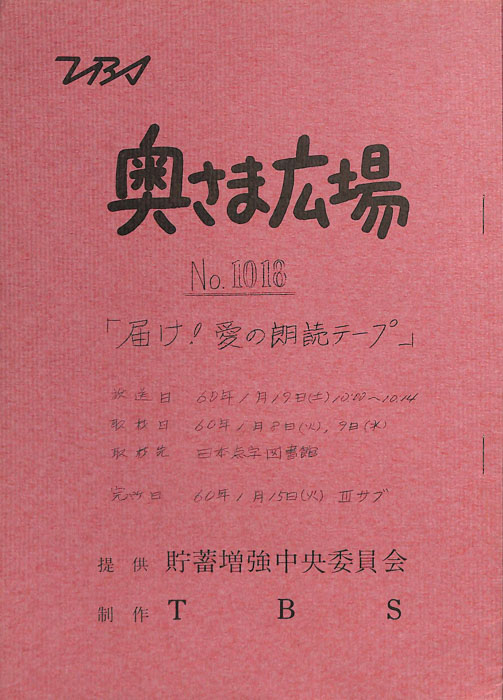 TBS
奥さま広場
No.1018
「届け!愛の朗読テープ」
放送日 60年1月19日(土)10:00~10:14
取材日 60年1月8日(火),9日(水)
取材先 日本点字図書館
完パ日 60年1月15日(火) Ⅲサブ
提供 貯蓄増強中央委員会
制作 TBS